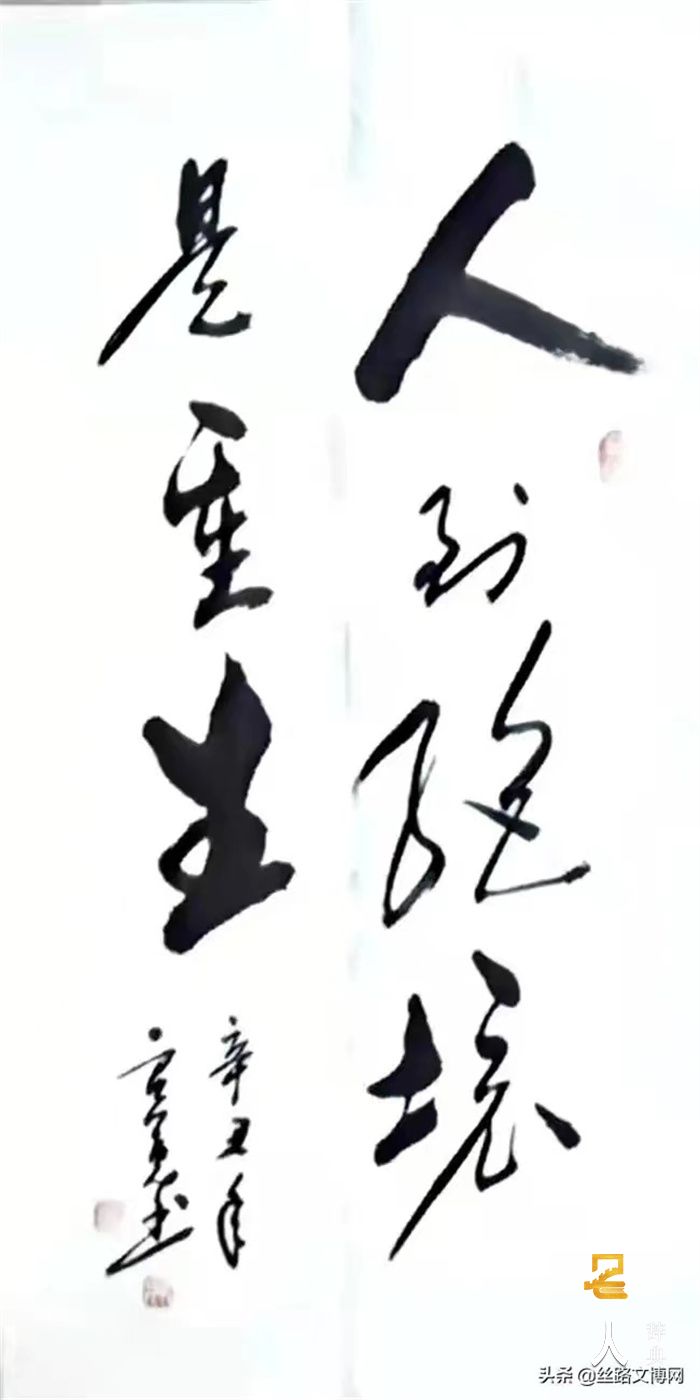 人到绝境
是重生
辛丑年
人
辞典
头条 @丝路文博网